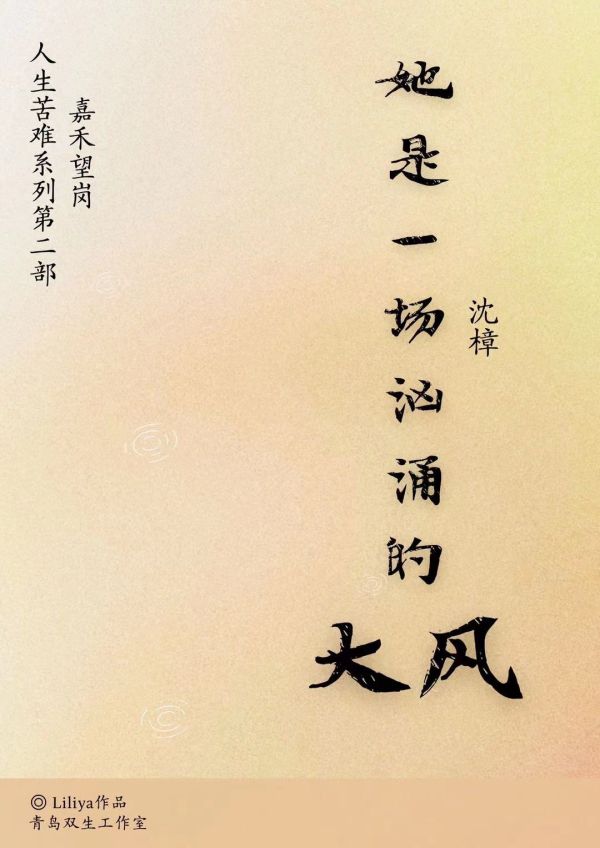 她是一场汹涌的
大风
沈樟
嘉禾望岗
人生苦难系列第二部
◎ Liliya作品
青鸟双生工作室